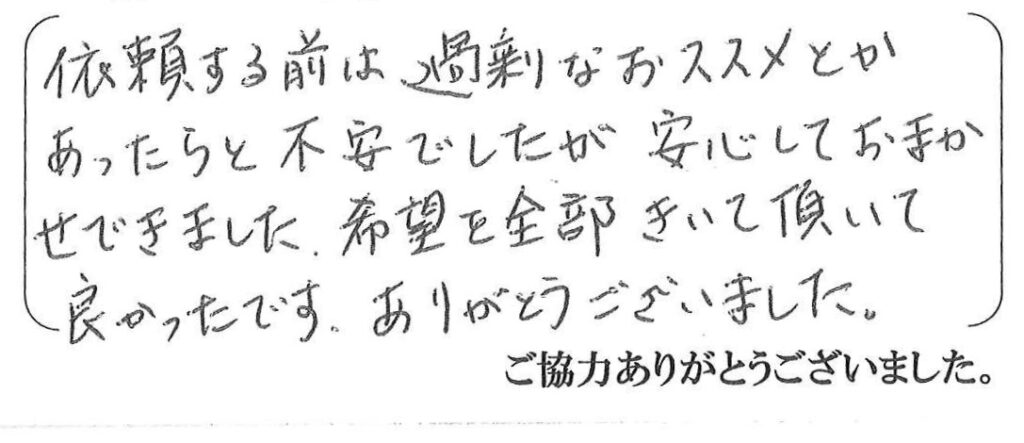 依頼する前は過剰なおススメとか
あったらと不安でしたが安心しておまか
せできました.希望を全部きいて頂いて
良かったです.ありがとうございました。
ご協力ありがとうございました。